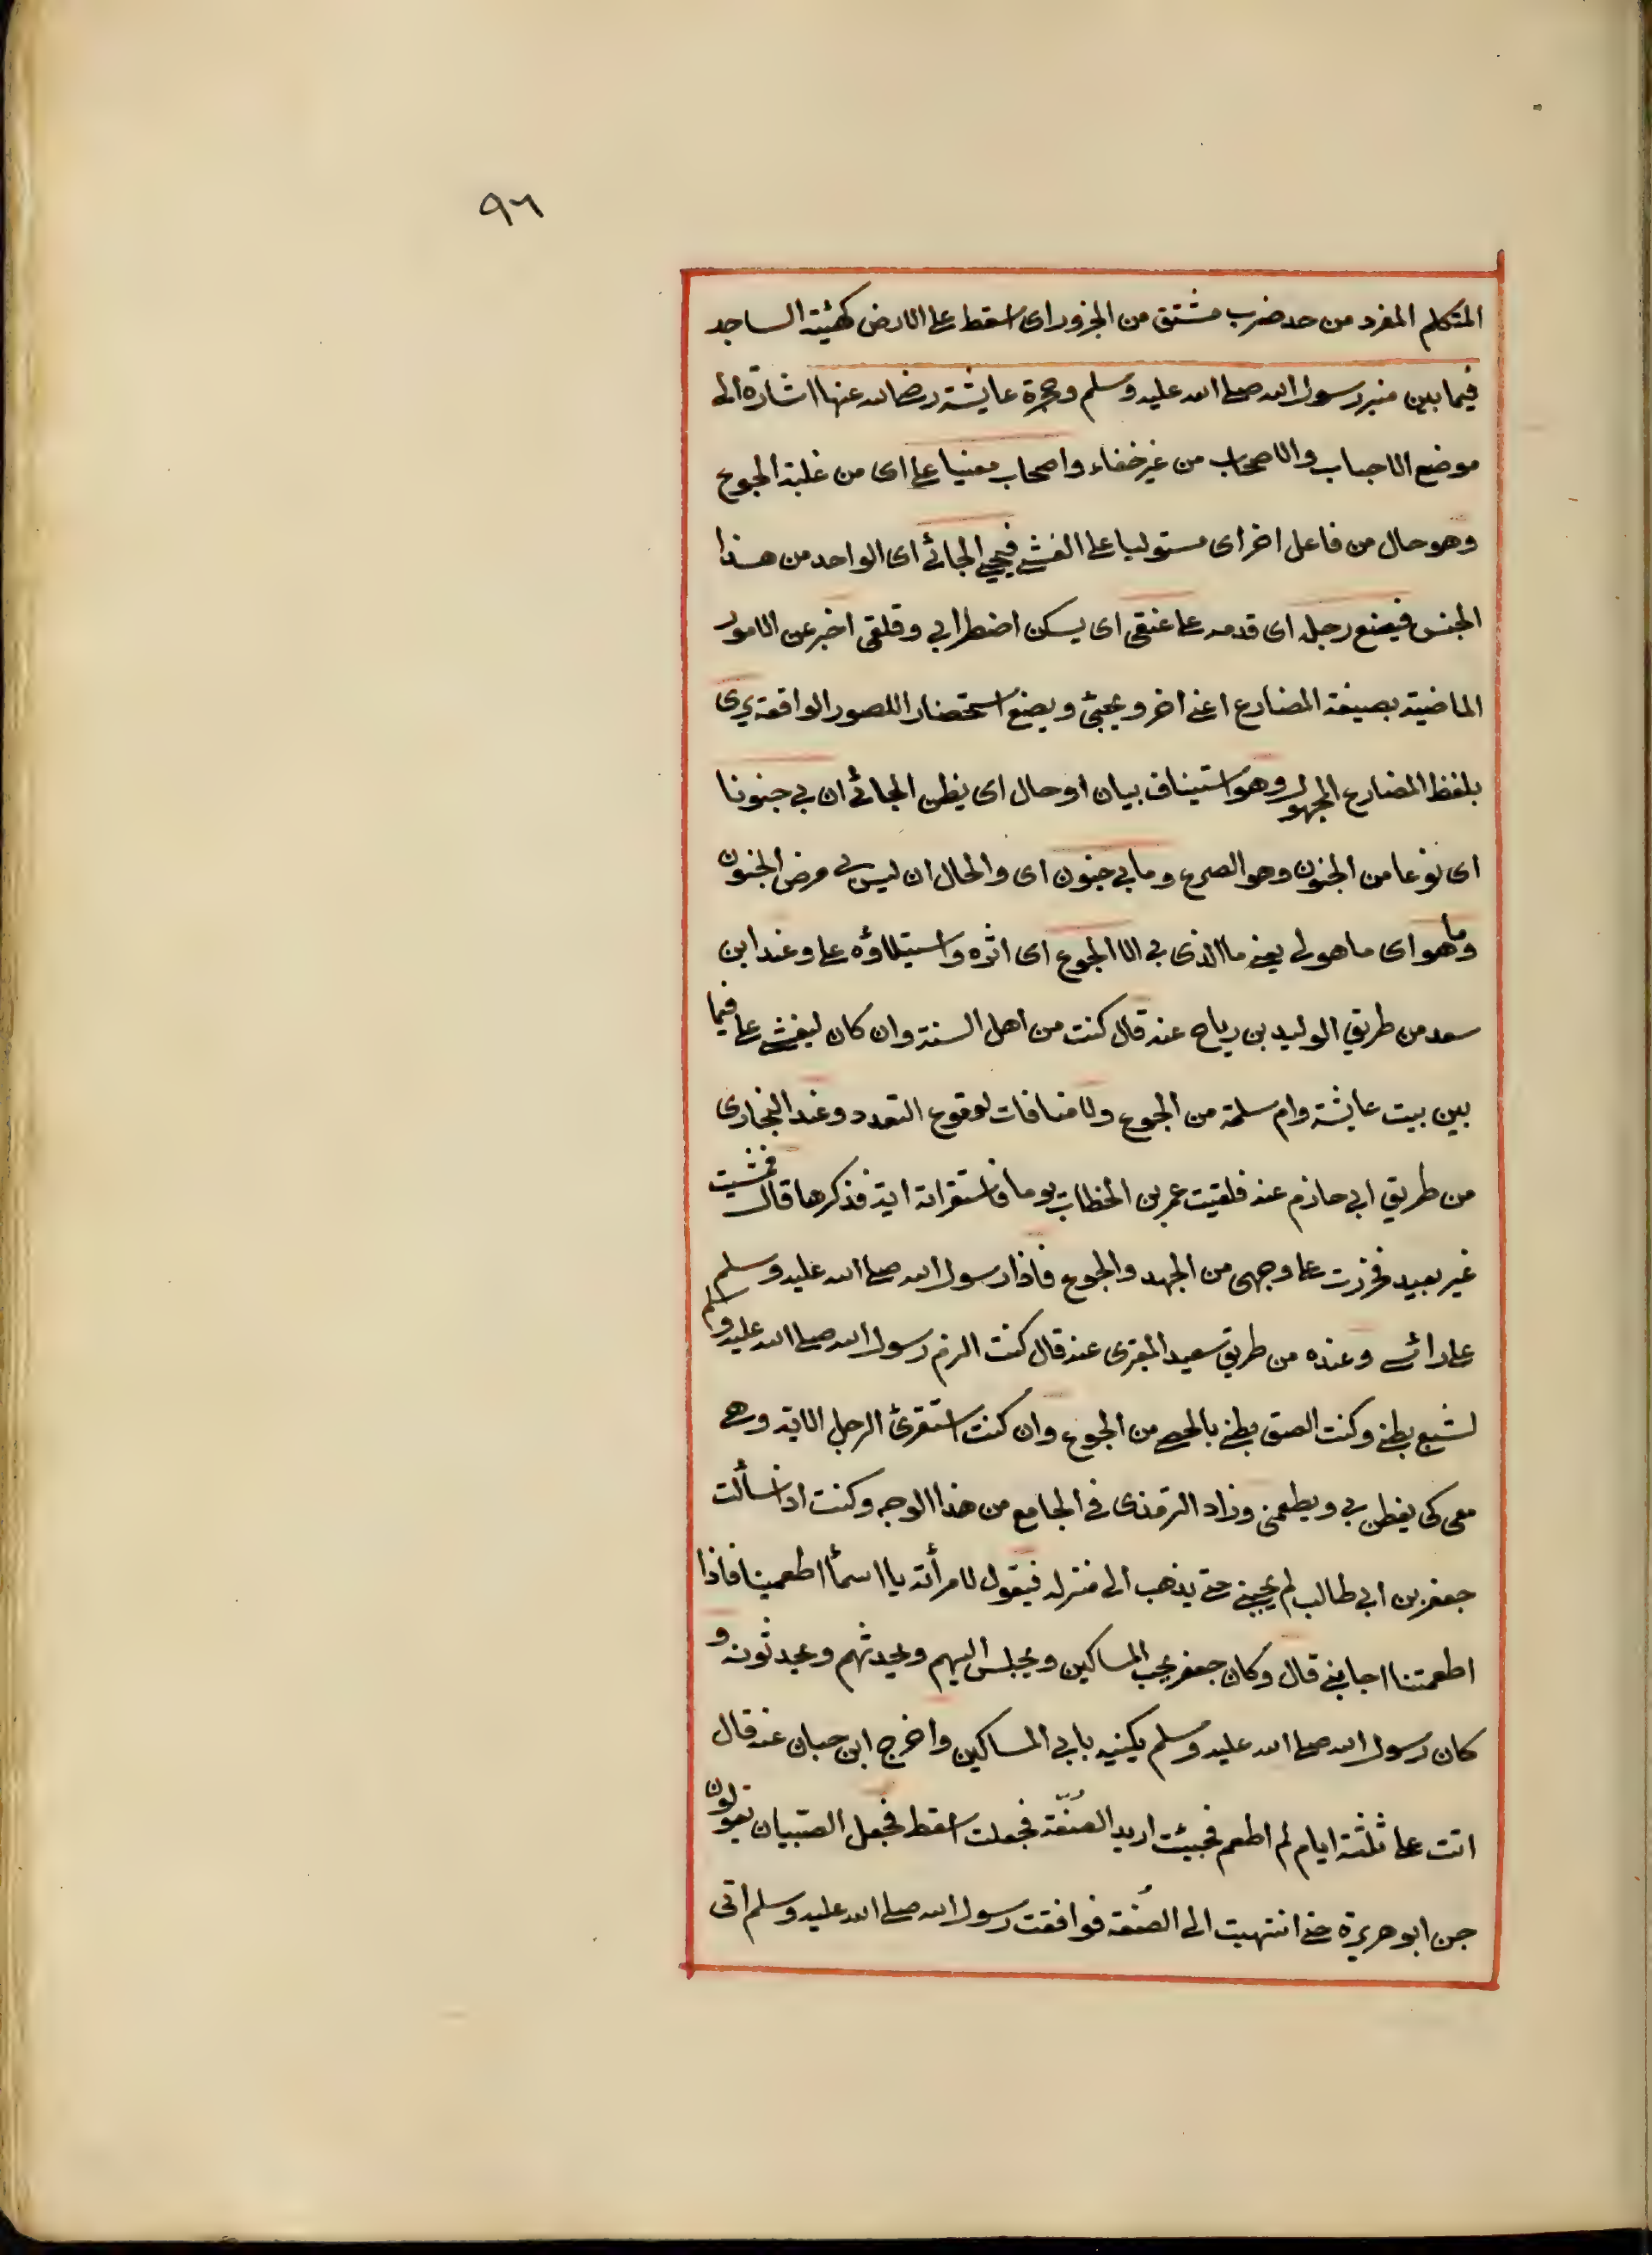 ٩٦
المتكلم المفرد من حد ضرب مشتق من الخرور اى اسقط على الارض كهيئة الساجد
فيما بين منبر رسول الله صلى الله عليه وسلم وحجرة عايشة رضى الله عنها اشارة الى
موضع الاحباب والاصحاب من غير خفاء واصحاب مغشيا على اى من غلبة الجوع
وهو حال من فاعل اخر اى مستوليا على الغشى فيجئ الجائى اى الواحد من هذا
الجنس فيضع رجله اى قدمه على عنقى اى يسكن اضطرابى وقلقى اخبر عن الامور
الماضية بصيغة المضارع اعنى اخر ويجئى ويضع استحضار اللصور الواقعة يرى
بلفظ المضارع المجهول وهو استيناف بيان او حال اى يظن الجائى ان بى جنونا
اى نوعا من الجنون وهو الصرع وما بى جنون اى والحال ان ليس بى مرض الجنون
وما هو اى ما هو لى يعنى ما الذى بى الا الجوع اى اثره واستيلاؤه على وعند ابن
سعد من طريق الوليد بن رباح عنه قال كنت من اهل السنة وان كان ليغشى على فيما
بين بيت عايشة وام سلمة من الجوع ولا منافات لوقوع التعدد وعند البخارى
من طريق ابى حازم عنه فلقيت عمر بن الخطاب يوما فاستقراته اية فذكرها قال فمشيت
غير بعيد فخررت على وجهى من الجهد والجوع فاذا رسول الله صلى الله عليه وسلم
على رائسى وعنده من طريق سعيد المقبرى عنه قال كنت الزم رسول الله صلى الله عليه وسلم
لشبع بطنى وكنت الصق بطنى بالحصى من الجوع وان كنت استقرئ الرجل الاية وهى
معى كى يفطن بى ويطعمنى وزاد الترمذى فى الجامع من هذا الوجه وكنت اذا سألت
جعفر بن ابى طالب لم يجبنى حتى يذهب الى منزله فيقول لامرأته يا اسمأ اطعمينا فاذا
اطعمتنا اجابنى قال وكان جعفر يحب المساكين ويجلس اليهم ويحدثهم ويحدثونه و
كان رسول الله صلى الله عليه وسلم يكنيه بابى المساكين واخرج ابن حبان عنه قال
اتت على ثلثة ايام لم اطعم فجيئت اريد الصُفّة فجعلت اسقط فجعل الصبيان يقولون
جن ابو هريرة حتى انتهيت الى الصُفة فوافقت رسول الله صلى الله عليه وسلم اتى